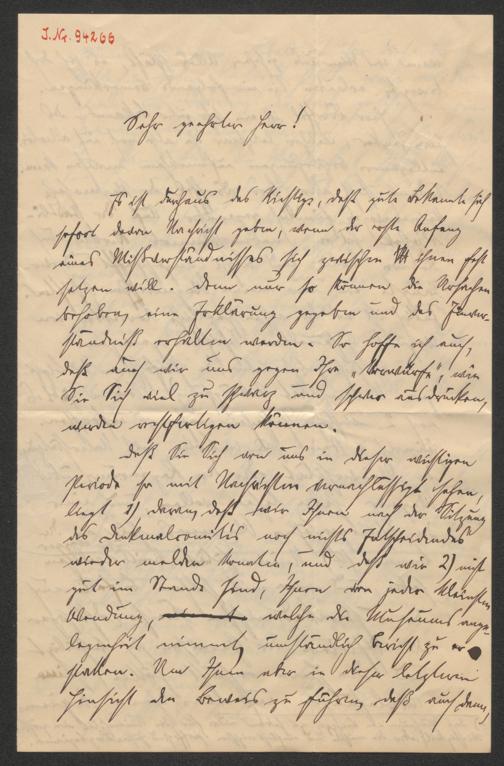 J. Nr. 94266
Sehr geehrter Herr!
Es ist durchaus das Richtige, daß gute Bekannte sich
sofort davon Nachricht geben, wenn der erste Anfang
eines Mißverständnisses sich zwischen ihnen fest
setzen will. Denn nur so können die Ursachen
behoben, eine Erklärung gegeben und das Einver-
ständniß erhalten werden. So hoffe ich auch,
daß auch wir uns gegen Ihre „Vorwürfe“, wie
Sie Sich viel zu schwarz und schwer ausdrücken,
werden rechtfertigen können.
Daß Sie Sich von uns in dieser wichtigen
Periode so mit Nachrichten vernachlässigt sehen,
liegt 1) daran, daß wir Ihnen nach der Sitzung
des Denkmalcomités noch nichts Entscheidendes
wieder melden konnten, und daß wir 2) nicht
gut im Stande sind, Ihnen von jeder kleinsten
Wendung, welche die Museumsange-
legenheit nimmt, umständlich Bericht zu er-
statten. Um Ihnen aber in dieser letzteren
Hinsicht den Beweis zu führen, daß auch dann,